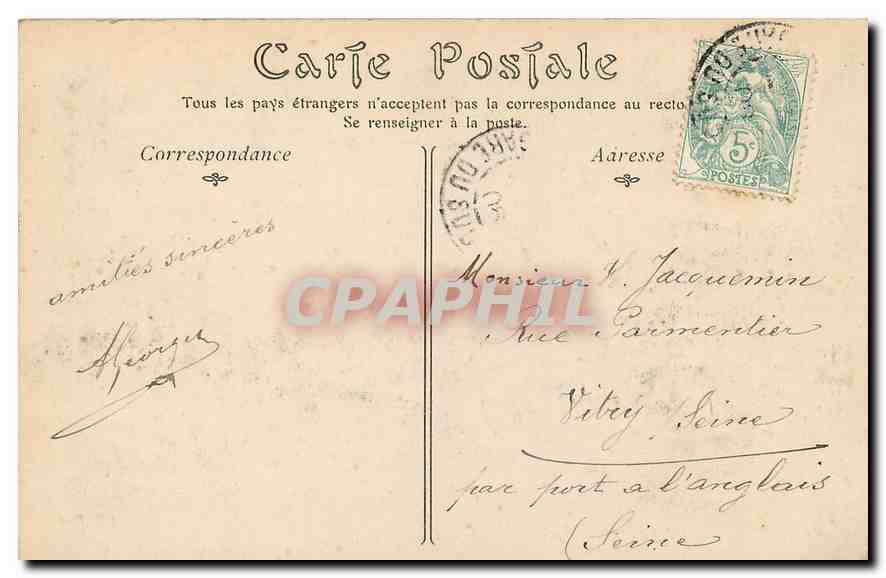 Carte Postale
Tous les pays étrangers n'acceptent pas la correspondance au recto.
Se renseigner à la poste.
Correspondance
Adresse
5c
POSTES
GARE DU SUD
amitiés sincères
AGeorges
CPAPHIL
Monsieur V. Jacquemin
Rue Parmentier
Vitry / Seine
par port a l'anglais
(Seine